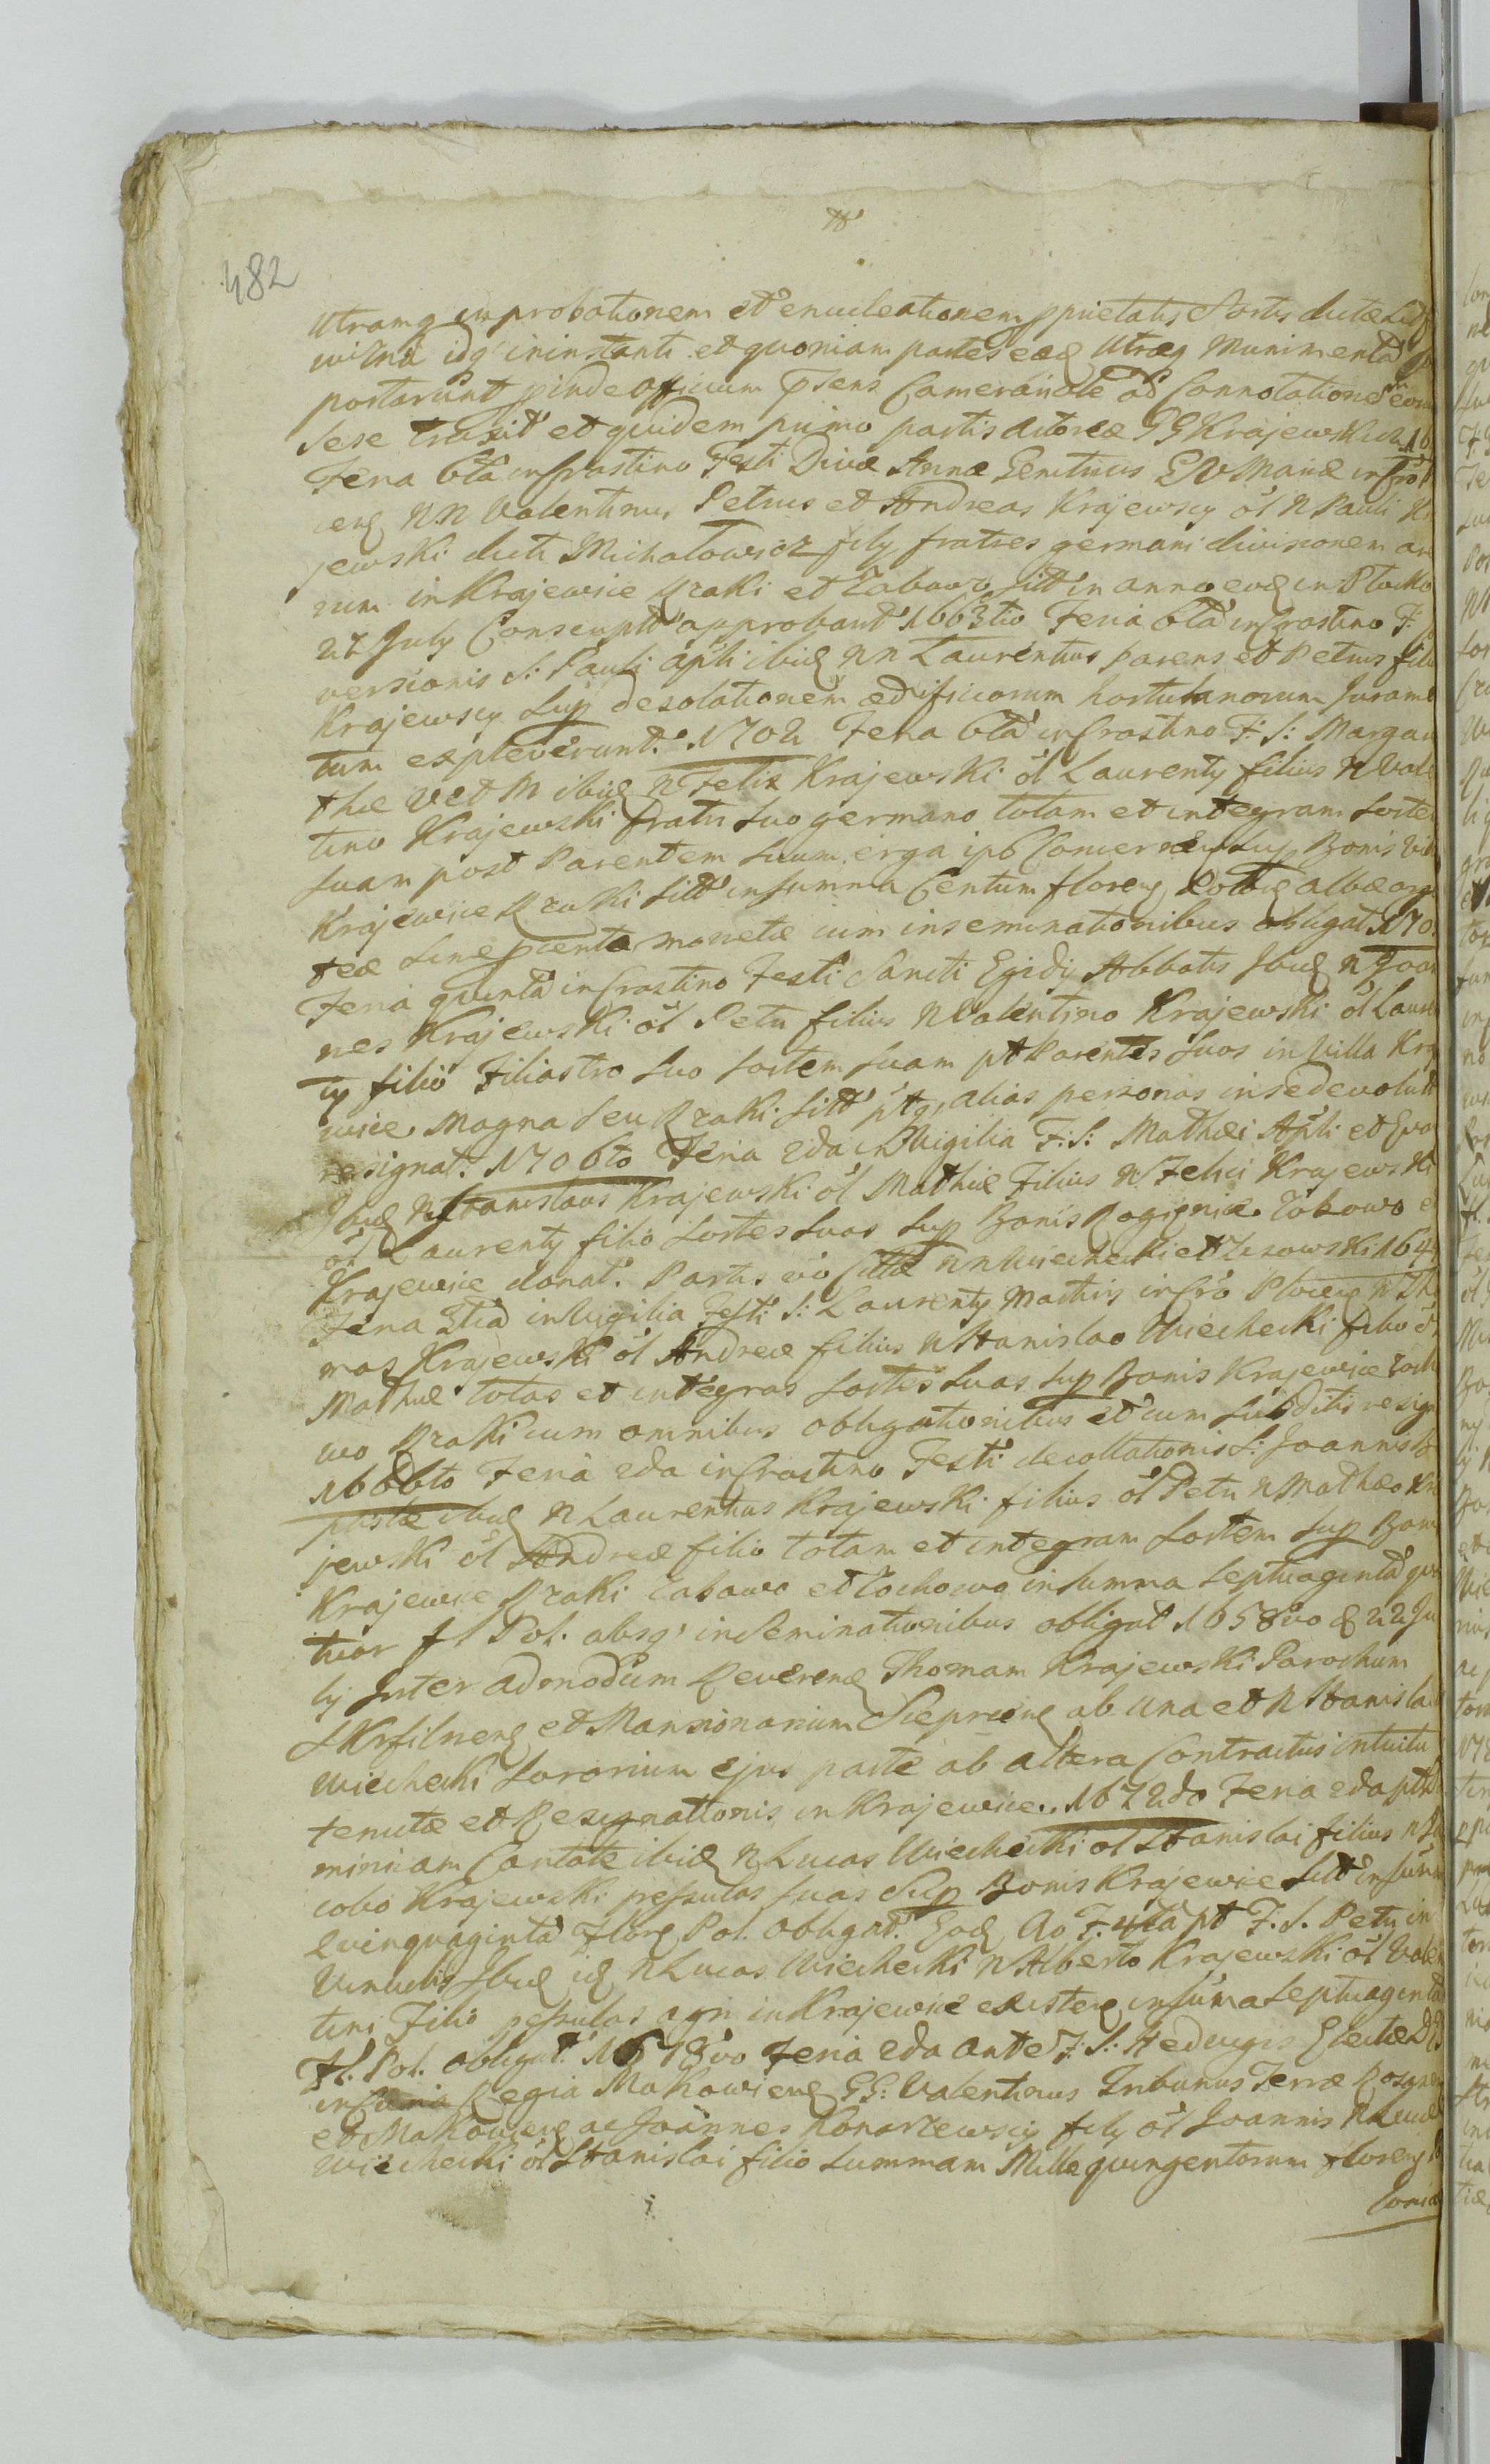 482
Utramq comprobationem et enucleationem pprietatis Sortis dictæ
idq' ininstanti et quoniam partes eædꝫ Utræq Munimenta
portarunt pinde Officium Psens Camerale ad Connotationem
sese traxit et quidem primo partis Actoreæ GG Krajewskich 16
Feria 6ta incrastino Festi Divæ Annæ Genitricis
NN Valentinus Petrus et Andreas Krajewscy ol N Pauli Kra
jewski dicti Michałowicz fily fratres germani divisionem
rum in Krajewice Rzaki et Zabowo sitt in anno eodꝫ in Płocko
27 July Conscriptt approbant 1663tio Feria 6ta in Crastino F:
versionis S: Pauli apli ibidꝫ NN Laurentius parens et Petrus filiu
Krajewscy sup desolationem ædificiorum hortulanorum Juramen
tum expleverunt. 1702 Feria 6ta in Crastino F: S: Marga
thæ V et M ibidꝫ N Felix Krajewski ol Laurenty filius N Vale
tino Krajewski fratri suo germano totam et integram sorte
suam post Parentem suum erga ips Concernen sup Bonis Vil
Krajewice Rzaki sitt in summa Centum florenꝫ Polꝫ albæ arg
teæ monetæ cum inseminationibus obligat 170
Feria quinta in Crastino Festi Sancti Egidy Abbatis Ibidꝫ N Joan
nes Krajewski ol Petri filius N Valentino Krajewski ol Laure
ty filio Filiastro suo sortem suam pt Parentes suos in Villa Kra
wice Magna seu Rzaki sitt ptq, alias personas in se devolutt
resignat. 1706to Feria 2da in Vigilia F: S: Mathæi Apli et Eva
Ibidꝫ N Stanislaus Krajewski ol Mathiæ Filius N Felici Krajewski
ol Laurenty filio sortes suas sup Bonis Rogienice Zabowo e
Krajewice donat. Partis vio Cittæ NN Wiecheckie et 164
Feria 3tia in Vigilia Festi S: Laurenty Mathiris in Cro Plocen N Tho
mas Krajewski ol Andreæ filius N Stanislao Wiechecki filio ol
Mathiæ totas et integras sortes suas sup Bonis Krajewice Zoch
wo Rzaki cum omnibus obligationibus et cum subditis resig
1686to Feria 2da in Crastino Festi decollationis S: Joannis Ba
ptistæ ibidꝫ N Laurentius Krajewski filius ol Petri N Mathæo Kra
jewski ol Andreæ filio totam et integram sortem sup Bon
Krajewice Rzaki Zabawo et Zochowo in summa septuaginta qua
tuor fl Pol. absq' inseminationibus obligat 1658vo d 22 Ju
ly Inter admodum Reverendꝫ Thomam Krajewski Parochum
et Mansionarium Sieprcenꝫ ab una et N Stanisla
Wiechecki Sororium ejus parte ab altera Contractus intuitu
tenutæ et Resignationis in Krajewice. 1672do Feria 2da ptt
minicam Cantate ibidꝫ N Lucas Wiechecki ol Stanislai filius N Ja
cobo Krajewski pessulas suas sup Bonis Krajewice sitt in sum
Quinquaginta Florꝫ Pol. obligat. Eodꝫ Ao F. 4ta pt F. S. Petri in
Vinculis Ibidꝫ idꝫ N Lucas Wiechecki N Alberto Krajewski ol Vale
tini Filio pessulas agri in Krajewice existenꝫ in suma septuaginta
Fl. Pol. obligat. 1678vo Feria 2da ante F. S: Hedvigis Electæ
in Regia Makowienꝫ GG: Valentinus Tribunus Terræ Rozane
et Makowienꝫ ac Joannes Konarzewscy fily ol Joannis N Lucæ
Wiechecki ol Stanislai filio summam Mille quingentorum florenꝫ